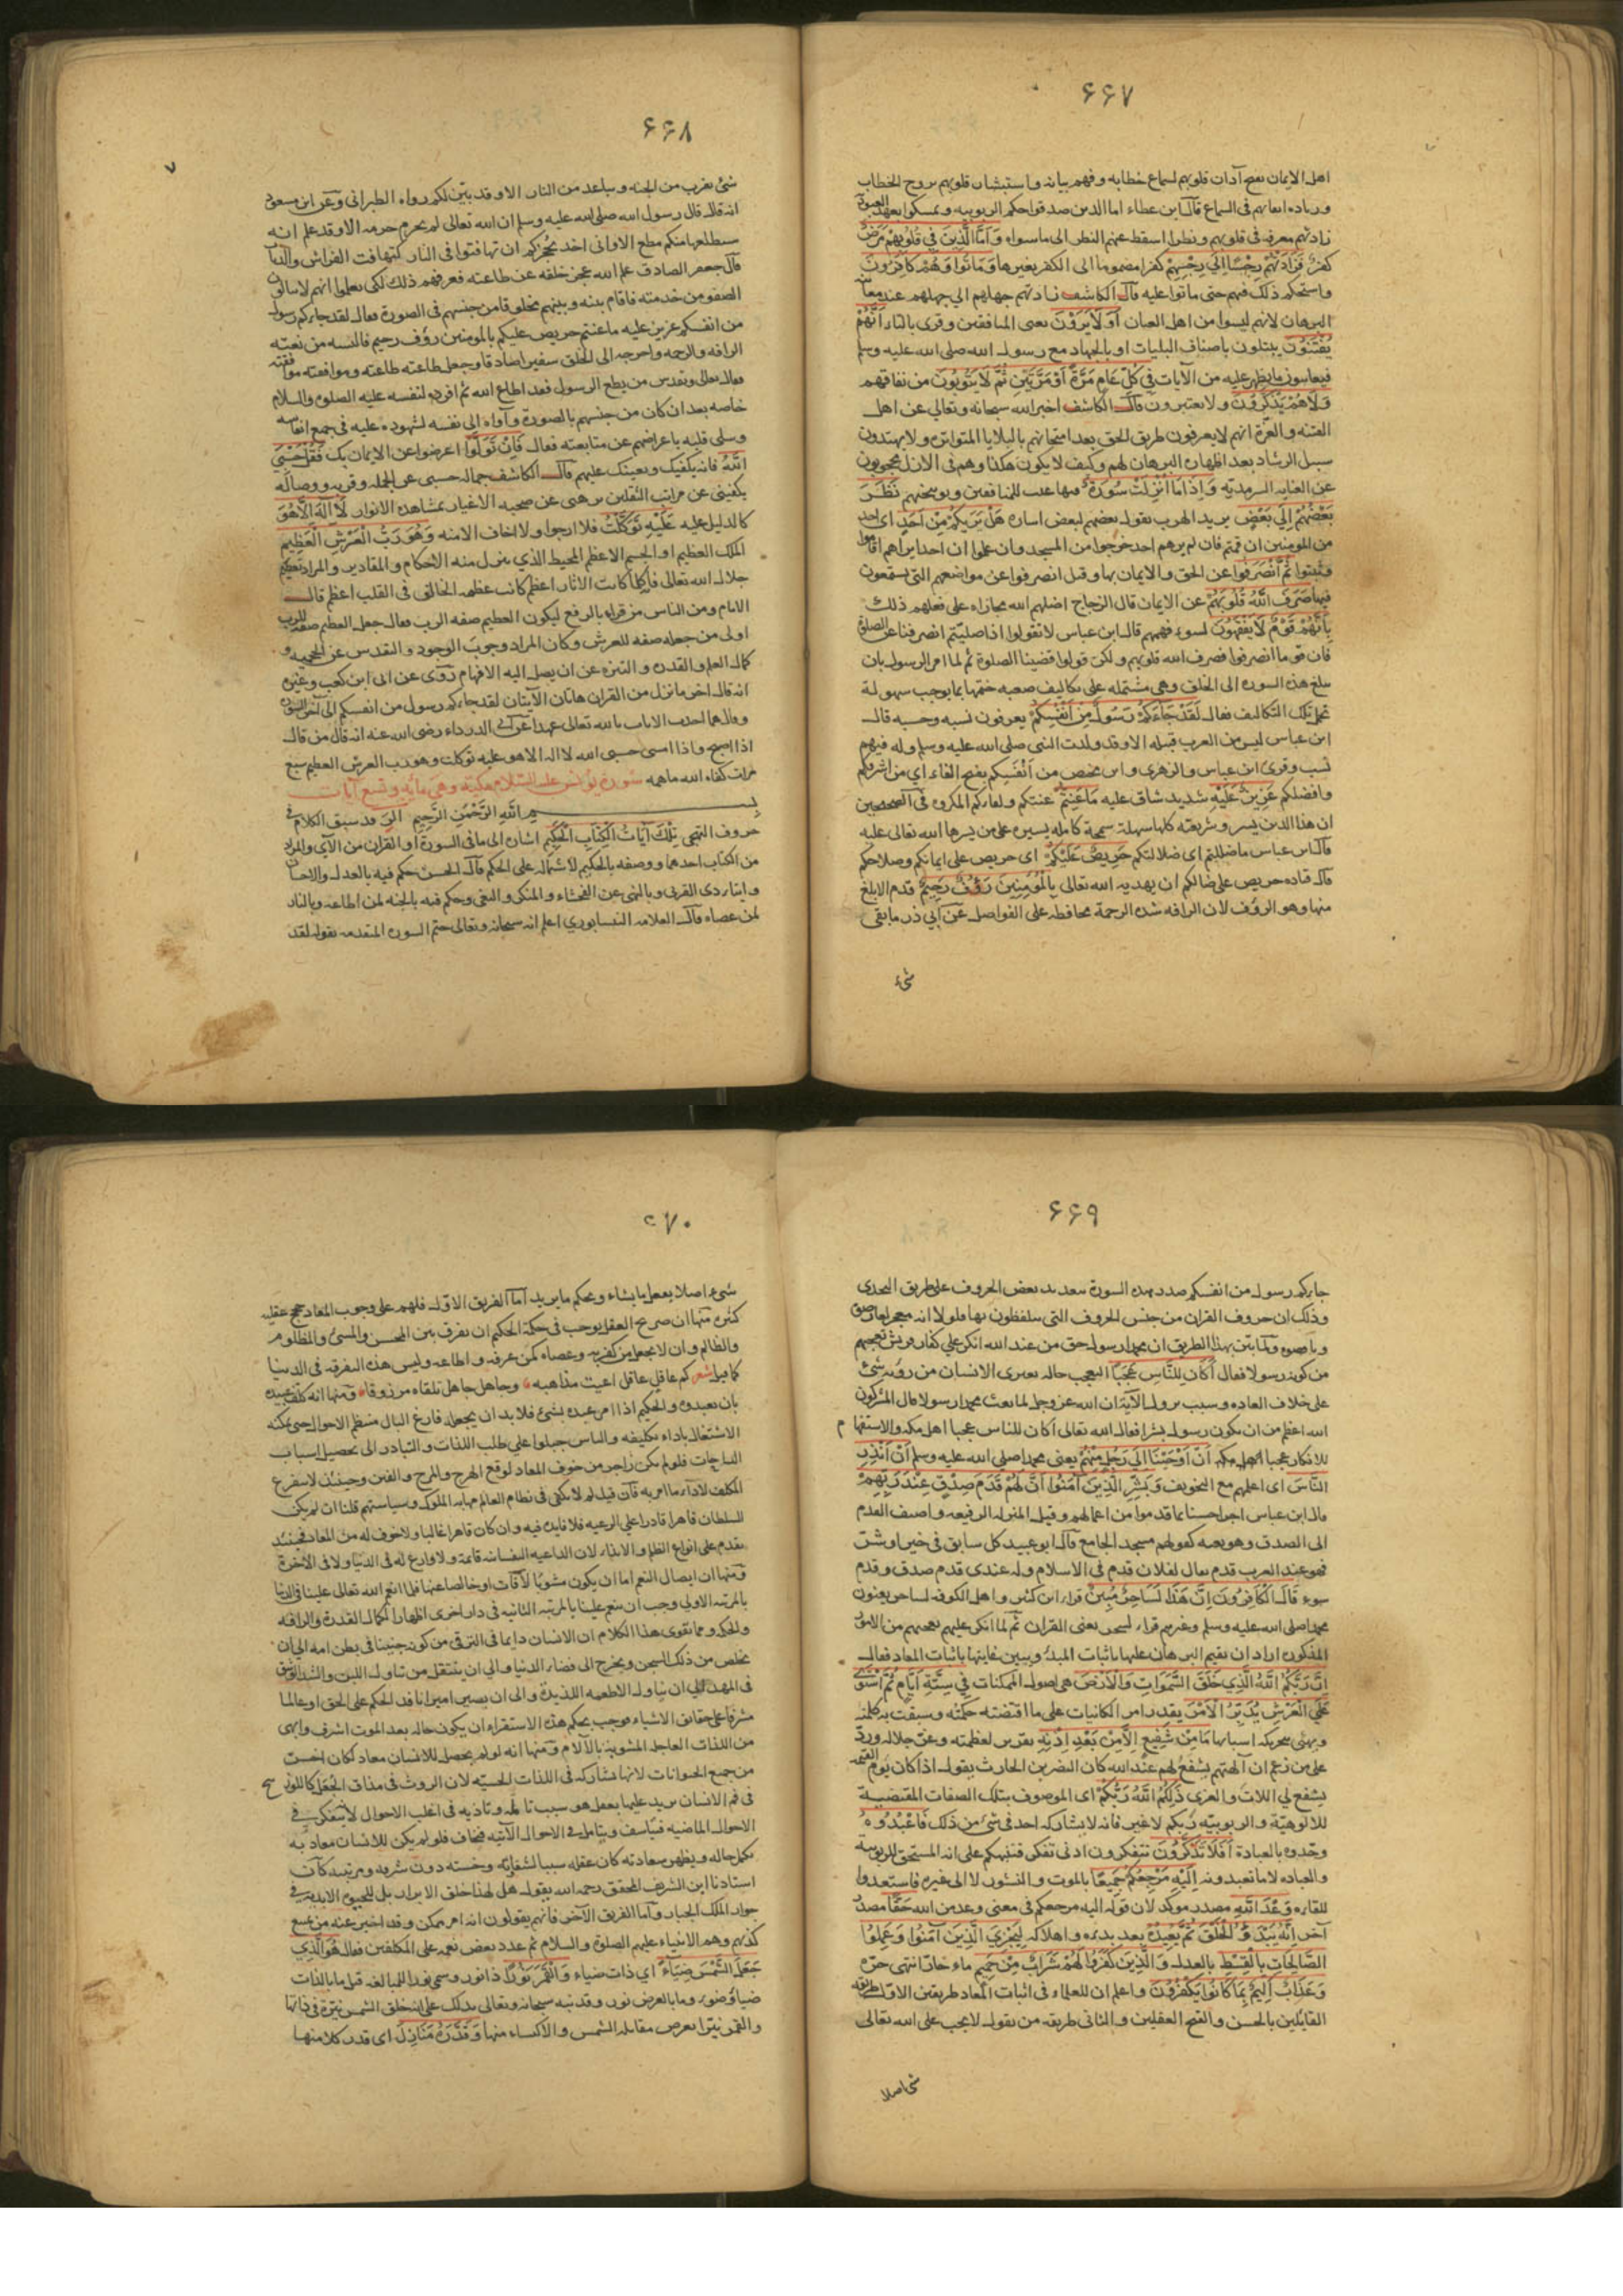 ۶۶۷
اهل الايمان بفتح آذان قلوبهم لسماع خطابه وفهم بيانه واستبشار قلوبهم بروح الخطاب
وزياده ايمانهم فى السماع قال ابن عطاء اما الذين صدقوا حكم الربوبيه وتمسكوا بعهد العبوديه
زادتهم معرفه فى قلوبهم ونظرا اسقط عنهم النظر الى ما سواه وَاَمَّا الَّذِينَ فِي قُلُوبِهِمْ مَرَضٌ
كفر فَزَادَتْهُمْ رِجْسًا اِلَي رِجْسِهِمْ كفرا مضموما الى الكفر بغيرها وَمَاتُوا وَهُمْ كَافِرُونَ
واستحكم ذلك فيهم حتى ماتوا عليه قال الكاشف زادتهم جهلهم الي جهلهم عند معاينة
البرهان لانهم ليسوا من اهل العيان اَوَلَا يَرَوْنَ يعنى المنافقين وقرى بالتاء اَنَّهُمْ
يُفْتَنُونَ يبتلون باصناف البليات او بالجهاد مع رسول الله صلى الله عليه وسلم
فيعاينون ما يظهر عليه من الآيات فِي كُلِّ عَامٍ مَرَّةً اَوْ مَرَّتَيْنِ ثُمَّ لَا يَتُوبُونَ من نفاقهم
وَلَا هُمْ يَذَّكَّرُونَ ولا يعتبرون قال الكاشف اخبر الله سبحانه وتعالي عن اهل
الفتنه والغرّة انهم لا يعرفون طريق الحق بعد امتحانهم بالبلايا المتواتره ولا يهتدون
سبيل الرشاد بعد اظهاره البرهان لهم وكيف لا يكون هكذا وهم فى الازل محجوبون
عن العنايه السرمديّه وَاِذَا مَا اُنْزِلَتْ سُورَةٌ فيها عيب للمنافقين وتوبيخهم نَظَرَ
بَعْضُهُمْ اِلَي بَعْضٍ يريد الهرب يقول بعضهم لبعض اشاره هَلْ يَرَيكُمْ مِنْ اَحَدٍ اى احد
من المومنين ان قمتم فان لم يرهم احد خرجوا من المسجد وان علموا ان احدا يراهم اقاموا
وثبتوا ثُمَّ انْصَرَفُوا عن الحق والايمان بها وقيل انصرفوا عن مواضعهم التى يسمعون
فيها صَرَفَ اللّٰهُ قُلُوبَهُمْ عن الايمان قال الزجاج اضلهم الله مجازاه على فعلهم ذلك
بِاَنَّهُمْ قَوْمٌ لَا يَفْقَهُونَ لسوء فهمهم قال ابن عباس لا تقولوا اذا صليتم انصرفنا عن الصلوة
فان قوما انصرفوا فصرف الله قلوبهم ولكن قولوا قضينا الصلوة ثم لما امر الرسول بان
يبلغ هذه السوره الى الخلق وهى مشتمله على تكاليف صعبه ختمها بما يوجب سهولة
تحمل تلك التكاليف فقال لَقَدْ جَاءَكُمْ رَسُولٌ مِنْ اَنْفُسِكُمْ يعرفون نسبه وحسبه قال
ابن عباس ليس من العرب قبيله الا وقد ولدت النبى صلى الله عليه وسلم وله فيهم
نسب وقرى ابن عباس والزهرى وابن محيصن من اَنْفَسِكم بفتح الفاء اي من اشرفكم
وافضلكم عَزِيزٌ عَلَيْهِ شديد شاق عليه مَا عَنِتُّمْ عنتكم ولقاؤكم المكروه فى الصحيحين
ان هذا الدين يسر وشريعته كلها سهلة سمحة كامله يسيره على من يسرها الله تعالى عليه
قال ابن عباس ما ضللتم اى ضلالتكم حَرِيصٌ عَلَيْكُمْ اى حريص على ايمانكم وصلاحكم
قال قتاده حريص على ضالكم ان يهديه الله تعالى بِالْمُؤْمِنِينَ رَؤُفٌ رَحِيمٌ قدم الابلغ
منها وهو الروف لان الرافه شده الرحمة محافظه على الفواصل عن ابي ذر ما بقى
شىء
۶۶۸
شئ يقرب من الجنه ويباعد من النار الا وقد بيّن لكم رواه الطبرانى وعن ابن مسعود
انه قال قال رسول الله صلى الله عليه وسلم ان الله تعالى لم يحرم حرمه الا وقد علم انه
سيطلعها منكم مطلع الاوانى اخذ بحجزكم ان تهافتوا فى النار كتهافت الفراش والذباب
قال جعفر الصادق علم الله عجز خلقه عن طاعته فعرفهم ذلك لكى يعلموا انهم لا ينالون
الصفو من خدمته فاقام بينه وبينهم مخلوقا من جنسهم فى الصورة فقال لقد جاءكم رسول
من انفسكم عزيز عليه ما عنتم حريص عليكم بالمومنين رؤف رحيم فالبسه من نعته
الرافه والرحمه واخرجه الى الخلق سفيرا صادقا وجعل طاعته طاعته وموافقته موافقته
فقال تعالى وتقدس من يطع الرسول فقد اطاع الله ثم افرده لنفسه عليه الصلوه والسلام
خاصه بعد ان كان من جنسهم بالصورة وآواه الى نفسه لشهوده عليه فى جميع انفاسه
وسلى قلبه باعراضهم عن متابعته فقال فَاِنْ تَوَلَّوْا اعرضوا عن الايمان بك فَقُلْ حَسْبِيَ
اللّٰهُ فانه يكفيك ويعينك عليهم قال الكاشف جماله حسبى عن الجمله وقربه ووصاله
يكفينى عن مراتب الثقلين برهنى عن صحبه الاغيار بمشاهده الانوار لَا اِلٰهَ اِلَّا هُوَ
كالدليل عليه عَلَيْهِ تَوَكَّلْتُ فلا ارجوا ولا اخاف الا منه وَهُوَ رَبُّ الْعَرْشِ الْعَظِيمِ
الملك العظيم او الجسم الاعظم المحيط الذي ينزل منه الاحكام والمقادير والمراد تعظيم
جلال الله تعالى فانه كلما كانت الاثار اعظم كانت عظمه الخالق فى القلب اعظم قال
الامام ومن الناس من قراه بالرفع ليكون العظيم صفه الرب فقال جعل العظيم صفه للرب
اولى من جعله صفه للعرش وكان المراد وجوب الوجود والتقدس عن الحجميه و
كمال العلم والقدره والتنزه عن ان يصل اليه الافهام رَوَى عن ابى ابن كعب وغيره
انه قال اخر ما نزل من القران هاتان الآيتان لقد جاءكم رسول من انفسكم الى آخر السورة
وقال هما احدث الايات بالله تعالى عهدا عن ابى الدرداء رضى الله عنه انه قال من قال
اذا اصبح واذا امسى حسبى الله لا اله الا هو عليه توكلت وهو رب العرش العظيم سبع
مرات كفاه الله ما همه سُورَة يُونس عليه السّلام مكيّة وهى مأية وتسع آيات
بِسْمِ اللّٰهِ الرَّحْمٰنِ الرَّحِيمِ الر قد سبق الكلام فى
حروف التهجى تِلْكَ آيَاتُ الْكِتَابِ الْحَكِيمِ اشاره الى ما فى السورة او القران من الآي والمراد
من الكتاب احدهما ووصفه بالحكيم لاشتماله على الحكم قال الحسن حكم فيه بالعدل والاحسان
وايتاء ذى القربى وبالنهى عن الفحشاء والمنكر والبغى وحكم فيه بالجنه لمن اطاعه وبالنار
لمن عصاه قال العلامه النيسابورى اعلم انه سبحانه وتعالى ختم السوره المتقدمه بقوله لقد
۶۶۹
جاءكم رسول من انفسكم صدر هذه السورة بتعديد بعض الحروف على طريق التحدى
وذلك ان حروف القران من جنس الحروف التى يتلفظون بها فلولا انه معجز لعارضوه
وناصبوه ولما بيّن بهذا الطريق ان محمدا رسول حق من عند الله انكر علي كفار قريش تعجبهم
من كونه رسولا فقال اَكَانَ لِلنَّاسِ عَجَبًا العجب حاله يعترى الانسان من رويه شئ
على خلاف العاده وسبب نزول الآية ان الله عز وجل لما بعث محمدا رسولا قال المشركون
الله اعظم من ان يكون رسوله بشرا فقال الله تعالى اكان للناس عجبا اهل مكه والاستفها م
للانكار عجبا لاهل مكه اَنْ اَوْحَيْنَا اِلَي رَجُلٍ مِنْهُمْ يعنى محمدا صلي الله عليه وسلم اَنْ اَنْذِرِ
النَّاسَ اى اعلمهم مع التخويف وَبَشِّرِ الَّذِينَ آمَنُوا اَنَّ لَهُمْ قَدَمَ صِدْقٍ عِنْدَ رَبِّهِمْ
قال ابن عباس اجرا حسنا بما قدموا من اعمالهم وقيل المنزله الرفيعه واضيف القدم
الى الصدق وهو نعته كقولهم مسجد الجامع قال ابو عبيد كل سابق فى خير او شرّ
فهو عند العرب قدم يقال لفلان قدم فى الاسلام وله عندى قدم صدق وقدم
سوء قَالَ الْكَافِرُونَ اِنَّ هَذَا لَسَاحِرٌ مُبِينٌ قراء ابن كثير واهل الكوفه لساحر يعنون
محمدا صلى الله عليه وسلم وغيرهم قراء لسحر يعنى القران ثم لما انكر عليهم تعجبهم من الامور
المذكوره اراد ان يقيم البرهان عليها باثبات المبدء ويبين غايتها باثبات المعاد فقال
اِنَّ رَبَّكُمُ اللّٰهُ الَّذِي خَلَقَ السَّمٰوَاتِ وَالْاَرْضَ هى اصول الممكنات فِي سِتَّةِ اَيَّامٍ ثُمَّ اسْتَوَى
عَلَي الْعَرْشِ يُدَبِّرُ الْاَمْرَ يقدر امر الكائنات على ما اقتضته حكمته وسبقت به كلمته
ويهئ بتحريكه اسبابها مَا مِنْ شَفِيعٍ اِلَّا مِنْ بَعْدِ اِذْنِهِ تقرير لعظمته وعز جلاله وردّ
على من زعم ان آلهتهم يشفع لهم عند الله كان النضر بن الحارث يقول اذا كان يوم القيمه
يشفع لي اللات والعزى ذَلِكُمُ اللّٰهُ رَبُّكُمْ اى الموصوف بتلك الصفات المقتضية
للالوهيّة والربوبيّه ربكم لا غير فانه لا يشاركه احد فى شئ من ذلك فَاعْبُدُوهُ
وحّدوه بالعبادة اَفَلَا تَذَكَّرُونَ تتفكرون ادنى تفكر فتنبهكم على انه المستحق للربوبيه
والعباده لا ما تعبدونه اِلَيْهِ مَرْجِعُكُمْ جَمِيعًا بالموت والنشور لا الى غيره فاستعدوا
للقائه وَعْدَ اللّٰهِ مصدر موكد لان قوله اليه مرجعكم فى معنى وعد من الله حَقًّا مصدر
آخر اِنَّهُ يَبْدَؤُ الْخَلْقَ ثُمَّ يُعِيدُهُ بعد بدئه واهلاكه لِيَجْزِيَ الَّذِينَ آمَنُوا وَعَمِلُوا
الصَّالِحَاتِ بِالْقِسْطِ بالعدل وَالَّذِينَ كَفَرُوا لَهُمْ شَرَابٌ مِنْ حَمِيمٍ ماء حارّ انتهى حرّه
وَعَذَابٌ اَلِيمٌ بِمَا كَانُوا يَكْفُرُونَ واعلم ان للعلماء فى اثبات المعاد طريقين الاول طريقه
القائلين بالحسن والقبح العقليين والثانى طريقه من يقول لا يجب على الله تعالى
شئ اصلا
۶۷۰
شىء اصلا يفعل ما يشاء ويحكم ما يريد اما الفريق الاوّل فلهم على وجوب المعاد حجج عقليه
كثيره منها ان صريح العقل يوجب فى حكمة الحكيم ان يفرق بين المحسن والمسئ والمظلوم
والظالم وان لا يجعل من كفر به وعصاه كمن عرفه واطاعه وليس هذه التفرقه فى الدنيا
كما قيل شعر كم عاقل عاقل اعيت مذاهبه وجاهل جاهل تلقاه مرزوقا ومنها انه كلف عبيده
بان يعبدوه والحكيم اذا امر عبده بشئ فلا بد ان يجعله فارغ البال منتظم الاحوال حتى يمكنه
الاشتغال باداء تكليفه والناس جبلوا على طلب اللذات والتبادر الى تحصيل اسباب
الراحات فلو لم يكن زاجر من خوف المعاد لوقع الهرج والمرج والفتن وحينئذ لا يتفرغ
المكلف لاداء ما امر به فان قيل لم لا يكفى فى نظام العالم مهابه الملوك وسياستهم قلنا ان لم يكن
السلطان قاهرا قادرا على الرعيه فلا فايده فيه وان كان قاهرا غالبا ولا خوف له من المعاد فحينئذ
يقدم على انواع الظلم والايذاء لان الداعيه النفسانيه قائمة ولا وازع له فى الدنيا ولا فى الاخرة
ومنها ان ايصال النعم اما ان يكون مشوبا لآفات او خالصا عنها فلما انعم الله تعالى علينا فى الدنيا
بالمرتبه الاولى وجب ان ينعم علينا بالمرتبه الثانيه فى دار اخرى اظهارا لكمال القدرة والرافه
والحكمه ومما يقوى هذا الكلام ان الانسان دايما فى الترقى من كونه جنينا فى بطن امه الى ان
تخلص من ذلك السجن ويخرج الى فضاء الدنيا والى ان ينتقل من تناول اللبن والشد الوثيق
فى المهد الى ان يتناول الاطعمه اللذيذة والى ان يصير اميرا نافذ الحكم على الخلق او عالما
مشرفا على حقائق الاشياء فوجب بحكم هذه الاستقراء ان يكون حاله بعد الموت اشرف وابهى
من اللذات العاجله المشوبة بالآلام ومنها انه لو لم يحصل للانسان معاد لكان اخسّ
من جميع الحيوانات لانها تشاركه فى اللذات الحسيّه لان الروث فى مذاق الجُعَل كاللوزينج
فى فم الانسان يزيد عليها بعقل هو سبب تالمه وتاذيه فى اغلب الاحوال لا يتفكر فى
الاحوال الماضيه فيتاسف ويتامل فى الاحوال الآتيه فيخاف فلو لم يكن للانسان معاد به
تكمل حاله ويظهر سعادته كان عقله سببا لشقائه وخسته دون شرفه ومرتبته كان
استادنا ابن الشريف المحقق رحمه الله يقول هل لهذا خلق الابرار بل للحيوه الابديه فى
جوار الملك الجبار واما الفريق الآخر فانهم يقولون انه امر ممكن وقد اخبر عنه من يمتنع
كذبهم وهم الانبياء عليهم الصلوة والسلام ثم عدد بعض نعمه على المكلفين فقال هُوَ الَّذِي
جَعَلَ الشَّمْسَ ضِيَاءً اي ذات ضياء وَالْقَمَرَ نُورًا ذا نور وسمى نورا للمبالغه قيل ما بالذات
ضياؤ ضوء وما بالعرض نور وقد نبه سبحانه وتعالى بذلك على انه خلق الشمس نيّرة فى ذاتها
والقمر نيّرا بعرض مقابله الشمس والاكتساء منها وَقَدَّرَهُ مَنَازِلَ اى قدر كلا منهما